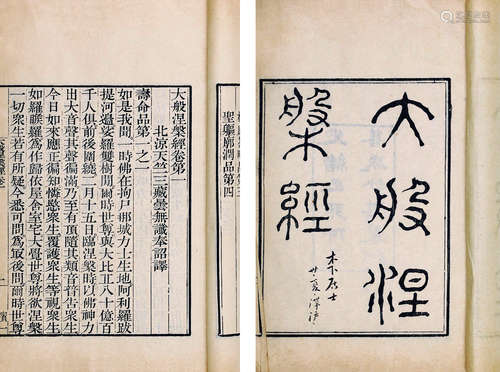 大般涅
槃經
大般涅槃經卷第一
北涼天竺三藏曇無讖奉詔譯
壽命品第一之一
如是我聞一時佛在拘尸那城力士生地阿利羅跋
提河邊娑羅雙樹間爾時世尊與大比丘八十億百
千人俱前後圍繞二月十五日臨涅槃時以佛神力
出大音聲其聲徧滿乃至有頂隨其類音普告眾生
今日如來應正徧知憐愍眾生覆護眾生等視眾生
如羅睺羅為作歸依屋舍室宅大覺世尊將欲涅槃
一切眾生若有所疑今悉可問為最後問爾時世尊